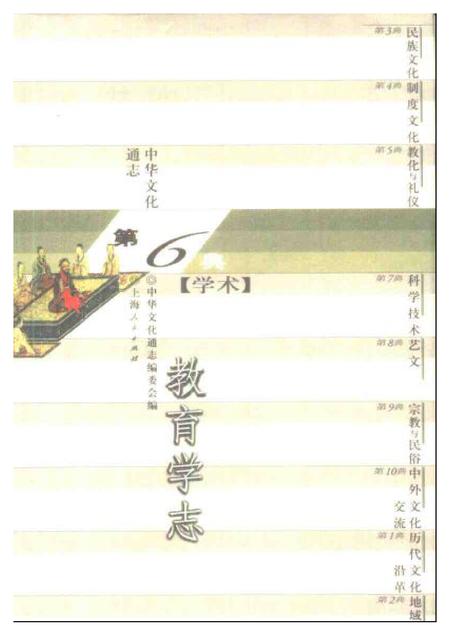 第3典 民族文化
第4典 制度文化
第5典 教化与礼仪
中华文化
通志
第6典
【学术】
第7典 科学技术
◎中华文化通志编委会编
◎上海人民出版社
第8典 艺文
教育学志
第9典 宗教与民俗
第10典 中外文化
交流
第1典 历代文化
沿革
第2典 地域